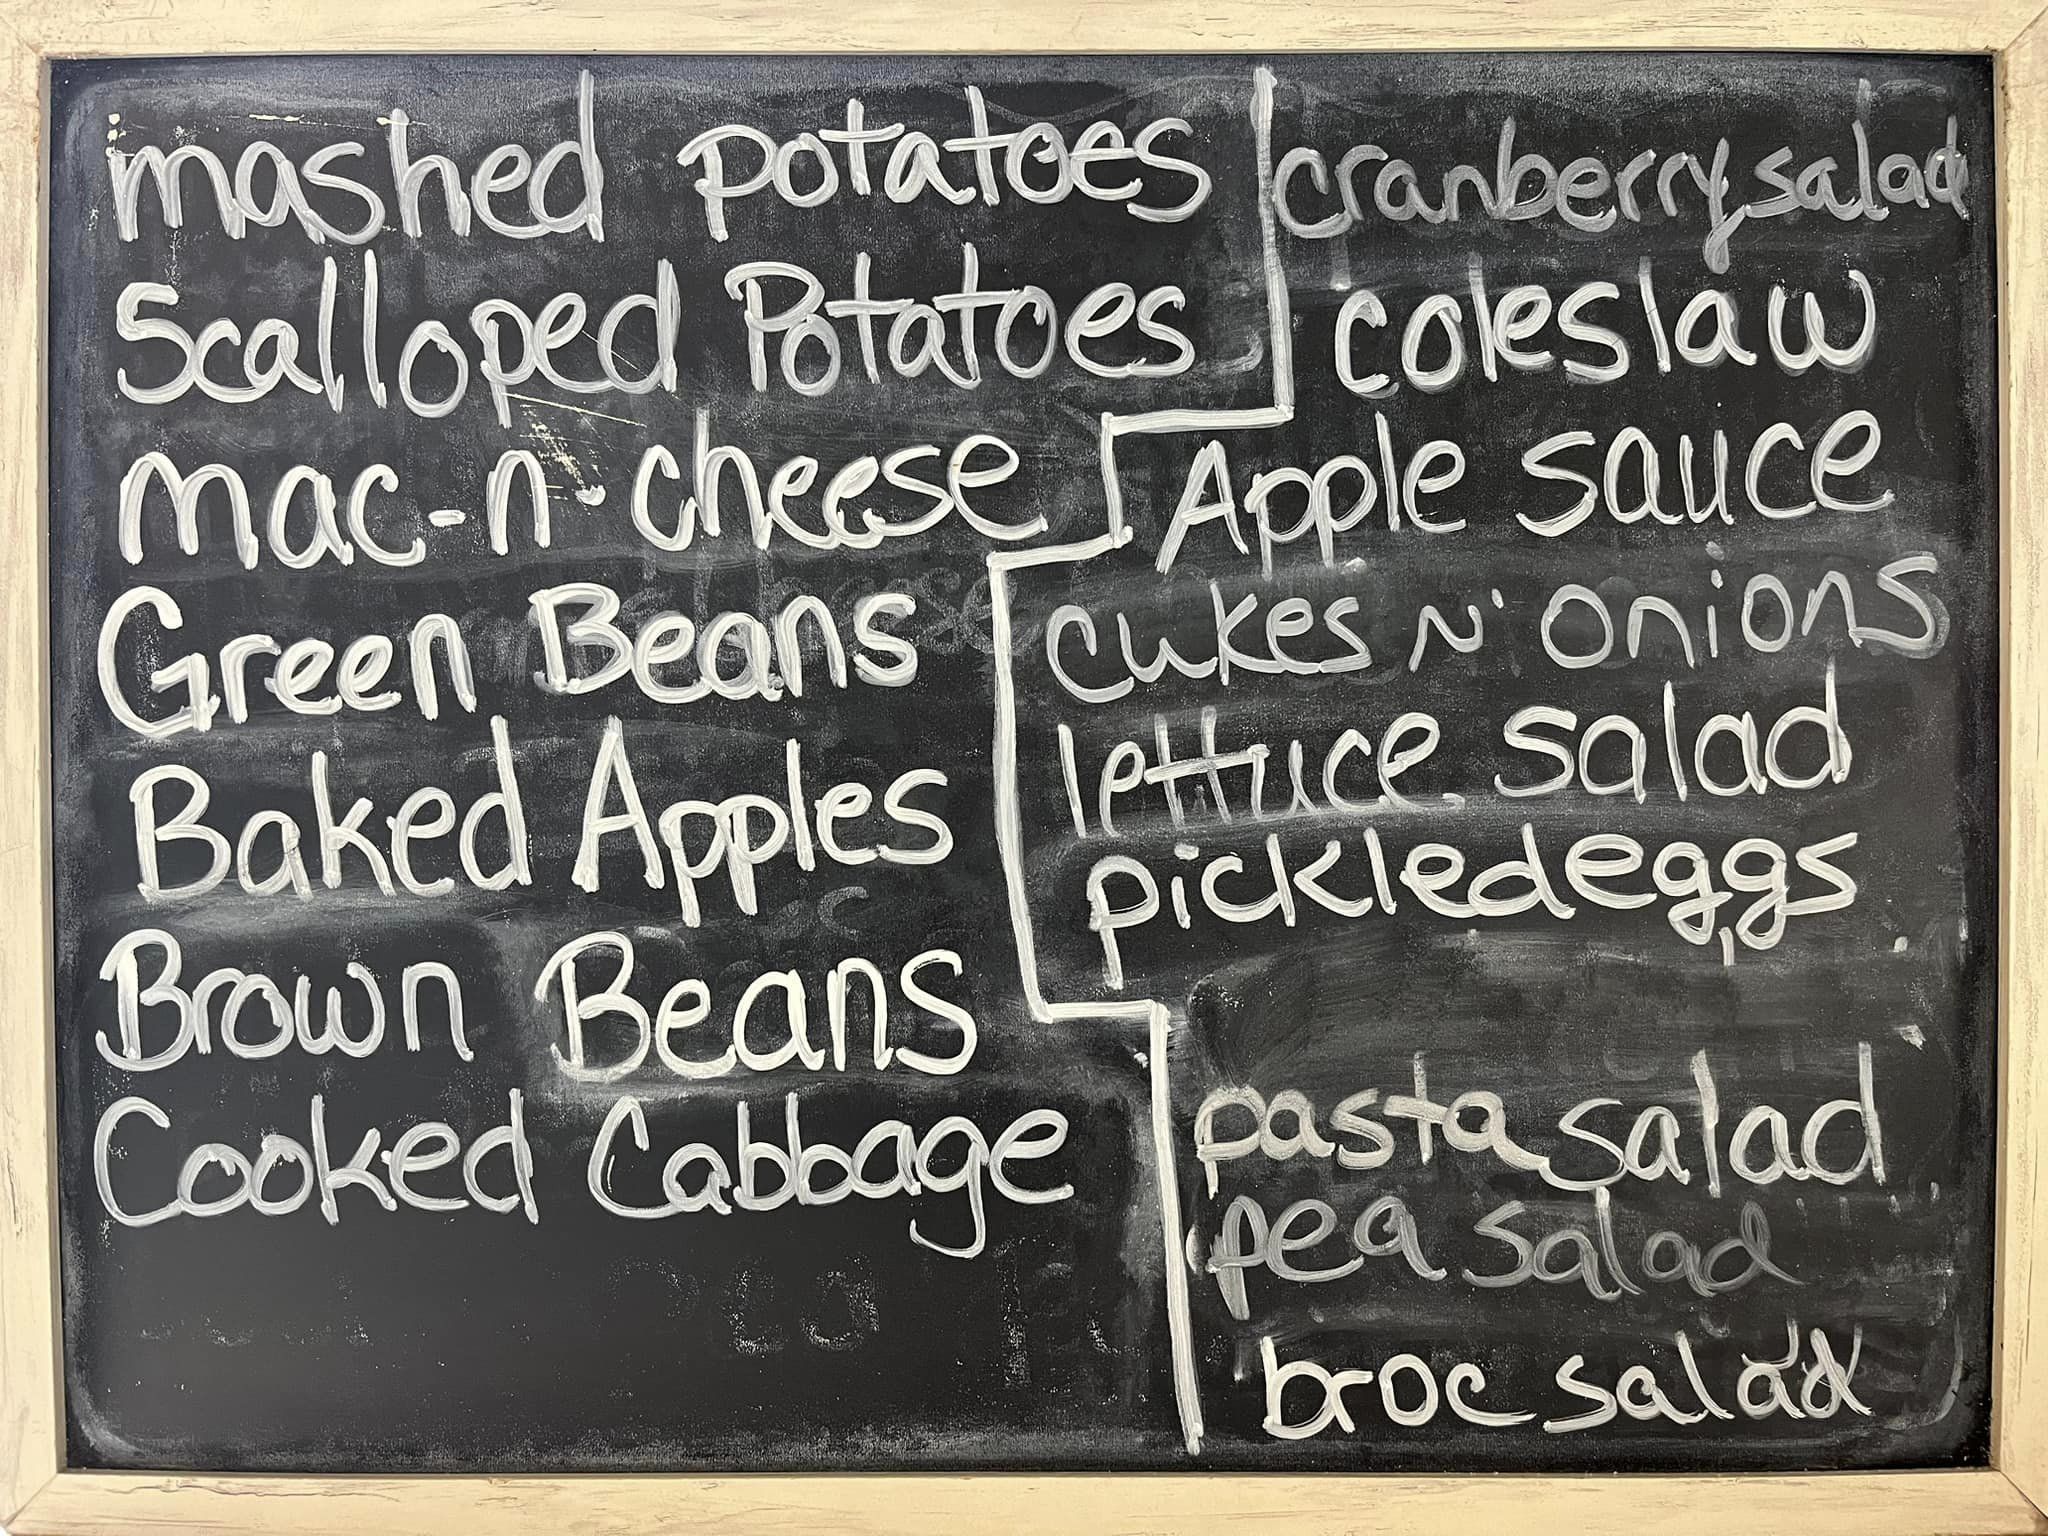 mashed potatoes
Scalloped Potatoes
mac-n-cheese
Green Beans
Baked Apples
Brown Beans
Cooked Cabbage
cranberry salad
coleslaw
Apple sauce
cukes n' onions
lettuce salad
pickled eggs
pasta salad
pea salad
broc salad